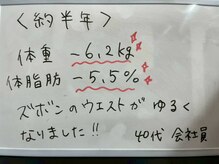 ＜約半年＞
体重 −6.2kg
体脂肪 −5.5%
ズボンのウエストがゆるく
なりました!! 40代 会社員